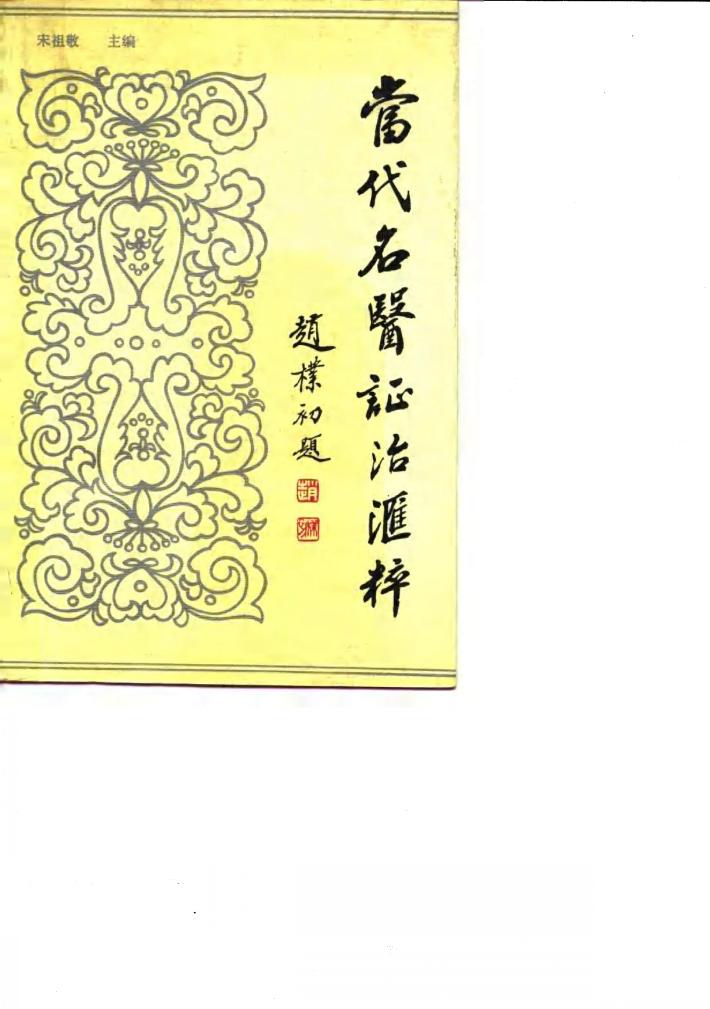 宋祖敬 主编
當代名醫証治滙粹
趙樸初題